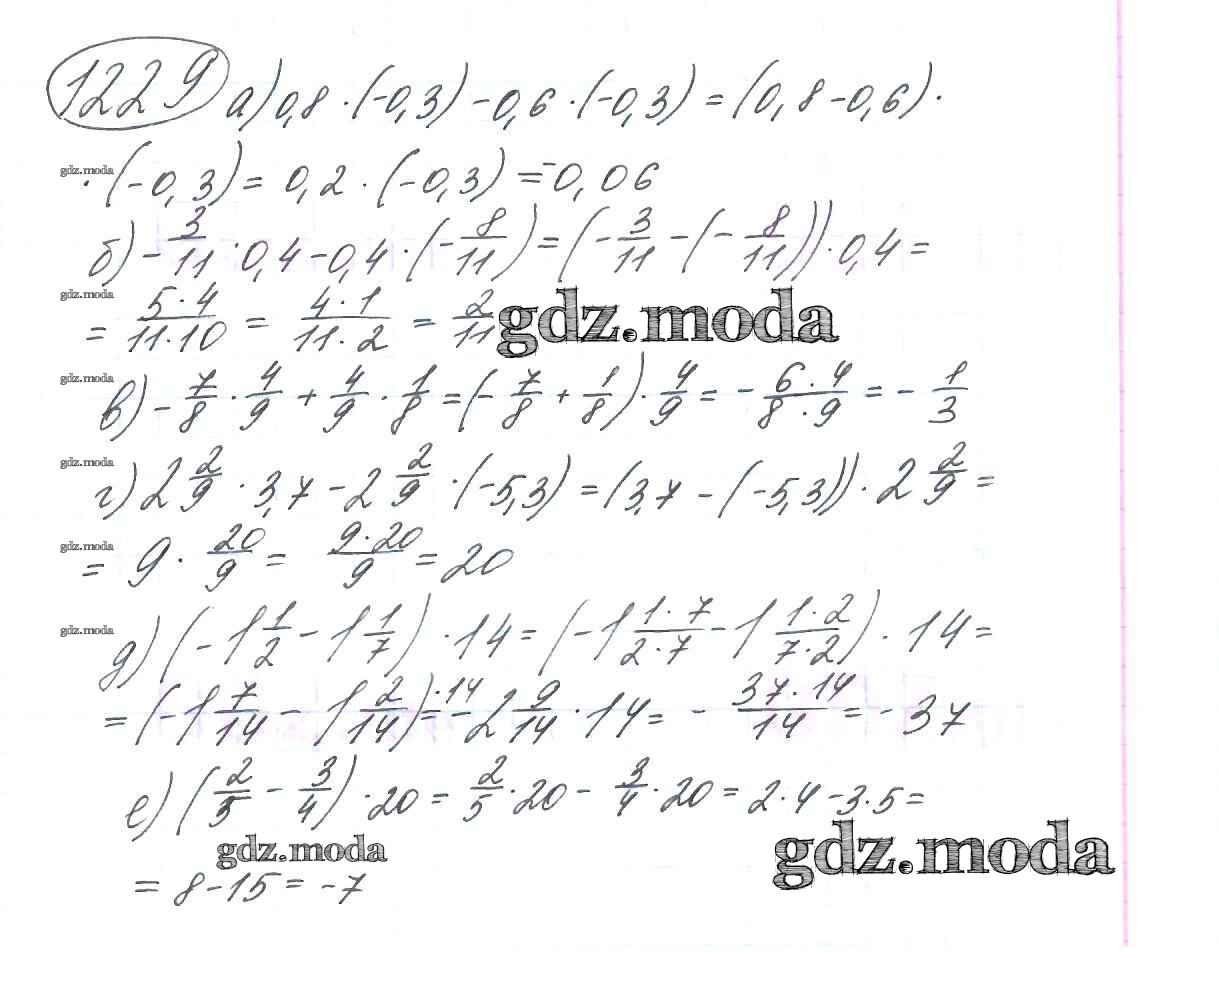 1229 а) 0,8 · (-0,3) - 0,6 · (-0,3) = (0,8 - 0,6) ·
gdz.moda
· (-0,3) = 0,2 · (-0,3) = -0,06
б) - 3/11 · 0,4 - 0,4 · (- 8/11) = (- 3/11 - (- 8/11)) · 0,4 =
gdz.moda
= 5·4/11·10 = 4·1/11·2 = 2/11
gdz.moda
gdz.moda
в) - 7/8 · 4/9 + 4/9 · 1/8 = (- 7/8 + 1/8) · 4/9 = - 6·4/8·9 = - 1/3
gdz.moda
г) 2 2/9 · 3,7 - 2 2/9 · (-5,3) = (3,7 - (-5,3)) · 2 2/9 =
gdz.moda
= 9 · 20/9 = 9·20/9 = 20
gdz.moda
д) (-1 1/2 - 1 1/7) · 14 = (-1 1·7/2·7 - 1 1·2/7·2) · 14 =
= (-1 7/14 - 1 2/14) · 14 = -2 9/14 · 14 = - 37·14/14 = -37
е) (2/5 - 3/4) · 20 = 2/5 · 20 - 3/4 · 20 = 2·4 - 3·5 =
gdz.moda
gdz.moda
= 8 - 15 = -7